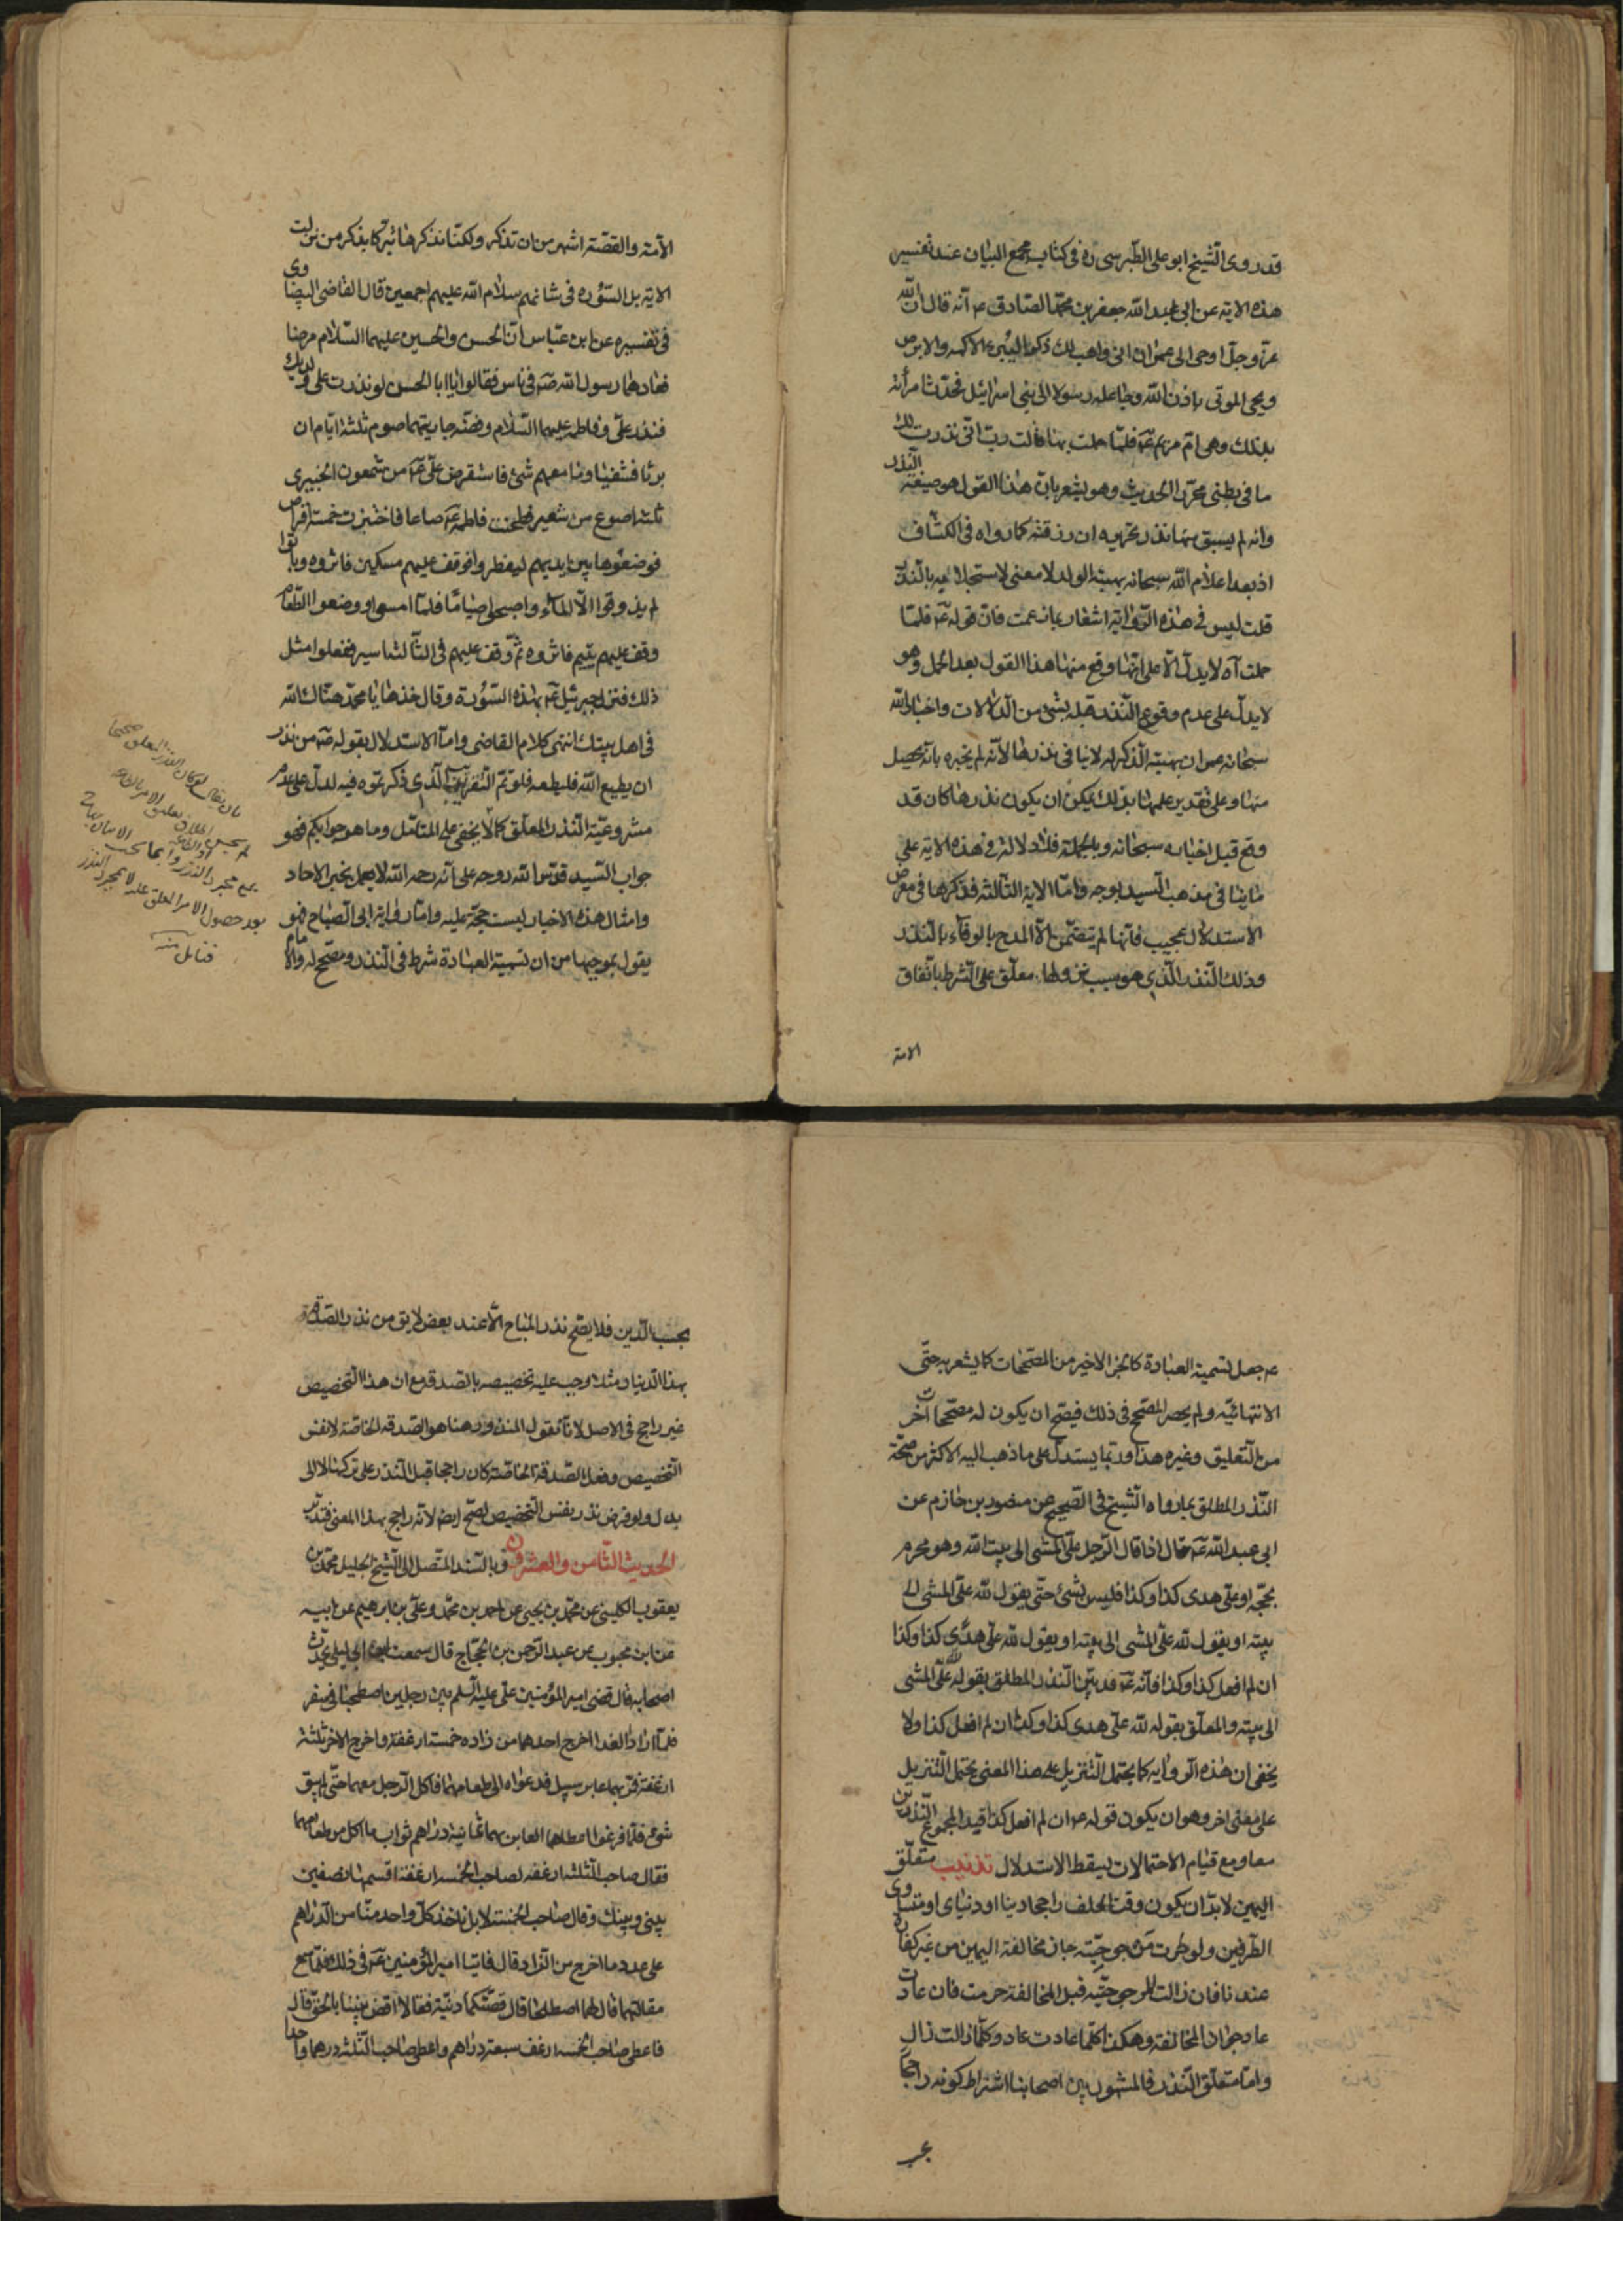 قد روى الشيخ ابو على الطبرسى ره فى كتاب مجمع البيان عند تفسير
هذه الاية عن ابى عبد الله جعفر بن محمد الصادق ع انه قال ان الله
عز وجل اوحى الى عمران انى واهب لك ذكرا يبرئ الاكمه والابرص
ويحيى الموتى باذن الله وجاعله رسولا الى بنى اسرائيل فحدث امرأته
بذلك وهى ام مريم ع فلما حملت بها قالت رب انى نذرت لك
ما فى بطنى محررا الحديث وهو يشعر بان هذا القول هو صيغة النذر
وانه لم يسبق منها نذر تحريره ان رزقته كما رواه فى الكشاف
اذ بعد اعلام الله سبحانه بهبة الولد لا معنى لاستجلابه بالنذر
قلت ليس فى هذه الرواية اشعار بما زعمت فان قوله ع فلما
حملت اه لا يدل الا على انها وقع منها هذا القول بعد الحمل وهو
لا يدل على عدم وقوع النذر قبله بشئ من الدلالات واخبار الله
سبحانه عمران بهبة الذكر له لا ينافى نذرها لانه لم يخبره بانه يحصل
منها وعلى تقدير علمها بذلك يمكن ان يكون نذرها كان قد
وقع قبل اخباره سبحانه وبالجملة فلا دلالة فى هذه الاية على
ما ينافى مذهب السيد بوجه واما الاية الثالثة فذكرها فى معرض
الاستدلال عجيب فانها لم يتضمن الا المدح بالوفاء بالنذر
وذلك النذر الذى هو سبب نزولها معلق على الشرط باتفاق
الامة
الامة والقصة اشهر من ان تذكر ولكنا نذكرها تبركا بذكر من نزلت
الاية بل السورة فى شانهم سلام الله عليهم اجمعين قال القاضى البيضاوى
فى تفسيره عن ابن عباس ان الحسن والحسين عليهما السلام مرضا
فعادهما رسول الله ص فى ناس فقالوا يا ابا الحسن لو نذرت على ولديك
فنذر على وفاطمة عليهما السلام وفضة جاريتهما صوم ثلثة ايام ان
برئا فشفيا وما معهم شئ فاستقرض على ع من شمعون الخيبرى
ثلثة اصوع من شعير فطحنت فاطمة ع صاعا فاختبزت خمسة اقراص
فوضعوها بين ايديهم ليفطروا فوقف عليهم مسكين فاثروه وباتوا
لم يذوقوا الا الماء واصبحوا صياما فلما امسوا ووضعوا الطعام
وقف عليهم يتيم فاثروه ثم وقف عليهم فى الثالثة اسير ففعلوا مثل
ذلك فنزل جبرئيل ع بهذه السورة وقال خذها يا محمد هناك الله
فى اهل بيتك انتهى كلام القاضى واما الاستدلال بقوله ص من نذر
ان يطيع الله فليطعه فلو تم التقريب الذى ذكرتموه فيه لدل على عدم
مشروعية النذر المعلق كما لا يخفى على المتامل وما هو جوابكم فهو
جواب السيد قدس الله روحه على انه رحمه الله لا يعمل بخبر الاحاد
وامثال هذه الاخبار ليست حجة عليه واما رواية ابى الصباح فهو
يقول بموجبها من ان تسمية العبادة شرط فى النذر ومصحح له والامام
بان يقال لو كان النذر المعلق صحيحا
بعد حصول الامر المعلق عليه لا بمجرد النذر
فتامل منه
ع جعل تسمية العبادة كالجزء الاخير من المصححات كما يشعر به حتى
الانتهائية ولم يحصر المصحح فى ذلك فيصح ان يكون له مصححات اخر
من التعليق وغيره هذا وربما يستدل على ما ذهب اليه الاكثر من صحة
النذر المطلق بما رواه الشيخ فى الصحيح عن منصور بن حازم عن
ابى عبد الله ع قال اذا قال الرجل على المشى الى بيت الله وهو محرم
بحجة او على هدى كذا وكذا فليس بشئ حتى يقول لله على المشى الى
بيته او يقول لله على المشى الى بيته او يقول لله على هدى كذا وكذا
ان لم افعل كذا وكذا فانه ع قد بين النذر المطلق بقوله لله على المشى
الى بيته والمعلق بقوله لله على هدى كذا وكذا ان لم افعل كذا ولا
يخفى ان هذه الرواية كما يحتمل التنزيل على هذا المعنى يحتمل التنزيل
على معنى اخر وهو ان يكون قوله ع ان لم افعل كذا قيدا لمجموع النذرين
معا ومع قيام الاحتمالات يسقط الاستدلال تذنيب متعلق
اليمين لا بد ان يكون وقت الحلف راجحا دينا او دنيا او متساوى
الطرفين ولو طرت مرجوحيته جاز مخالفة اليمين من غير كفارة
عندنا فان زالت المرجوحية قبل المخالفة حرمت فان عادت
عاد جواز المخالفة وهكذا كلما عادت عاد وكلما زالت زال
واما متعلق النذر فالمشهور بين اصحابنا اشتراط كونه راجحا
بحسب
بحسب الدين فلا يصح نذر المباح الا عند بعض لا يق من نذر الصدقة
بهذا الدينار مثلا وجب عليه تخصيصه بالصدقة مع ان هذا التخصيص
غير راجح فى الاصل لانا نقول المنذور هنا هو الصدقة الخاصة لا نفس
التخصيص وفعل الصدقة الخاصة كان راجحا قبل النذر على تركها لا الى
بدل ولو فرض نذر نفس التخصيص لصح ايضا لانه راجح بهذا المعنى فتدبر
الحديث الثامن والعشرون وبالسند المتصل الى الشيخ الجليل محمد بن
يعقوب الكلينى عن محمد بن يحيى عن احمد بن محمد وعلى بن ابراهيم عن ابيه
عن ابن محبوب عن عبد الرحمن بن الحجاج قال سمعت ابن ابى ليلى يحدث
اصحابه قال قضى امير المؤمنين على عليه السلم بين رجلين اصطحبا فى سفر
فلما ارادا الغدا اخرج احدهما من زاده خمسة ارغفة واخرج الاخر ثلثة
ارغفة فمر بهما عابر سبيل فدعواه الى طعامهما فاكل الرجل معهما حتى لم يبق
شئ فلما فرغوا اعطاهما العابر بهما ثمانية دراهم ثواب ما اكل من طعامهما
فقال صاحب الثلثة ارغفة لصاحب الخمسة ارغفة اقسمها نصفين
بينى وبينك وقال صاحب الخمسة لا بل ياخذ كل واحد منا من الدراهم
على عدد ما اخرج من الزاد قال فاتيا امير المؤمنين ع فى ذلك فلما سمع
مقالتهما قال لهما اصطلحا فان قضيتكما دنية فقالا اقض بيننا بالحق قال
فاعطى صاحب الخمسة ارغفة سبعة دراهم واعطى صاحب الثلثة درهما واحدا